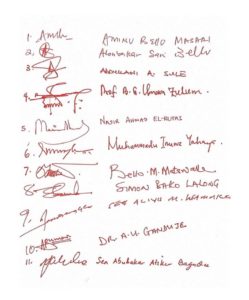 1. AMINU BELLO MASARI
2. Abubakar Sani Bello
3. ABDULLAHI A. SULE
4. Prof. B. G. Umara Zulum.
5. NASIR AHMAD EL-RUFAI
6. Muhammadu Inuwa Yahaya
7. BELLO. M. MATAWALLE
8. SIMON BAKO LALONG
9. SEN ALIYU M. WAMAKKO
10. DR. A. U. GANDUJE
11. Sen Abubakar Atiku Bagudu